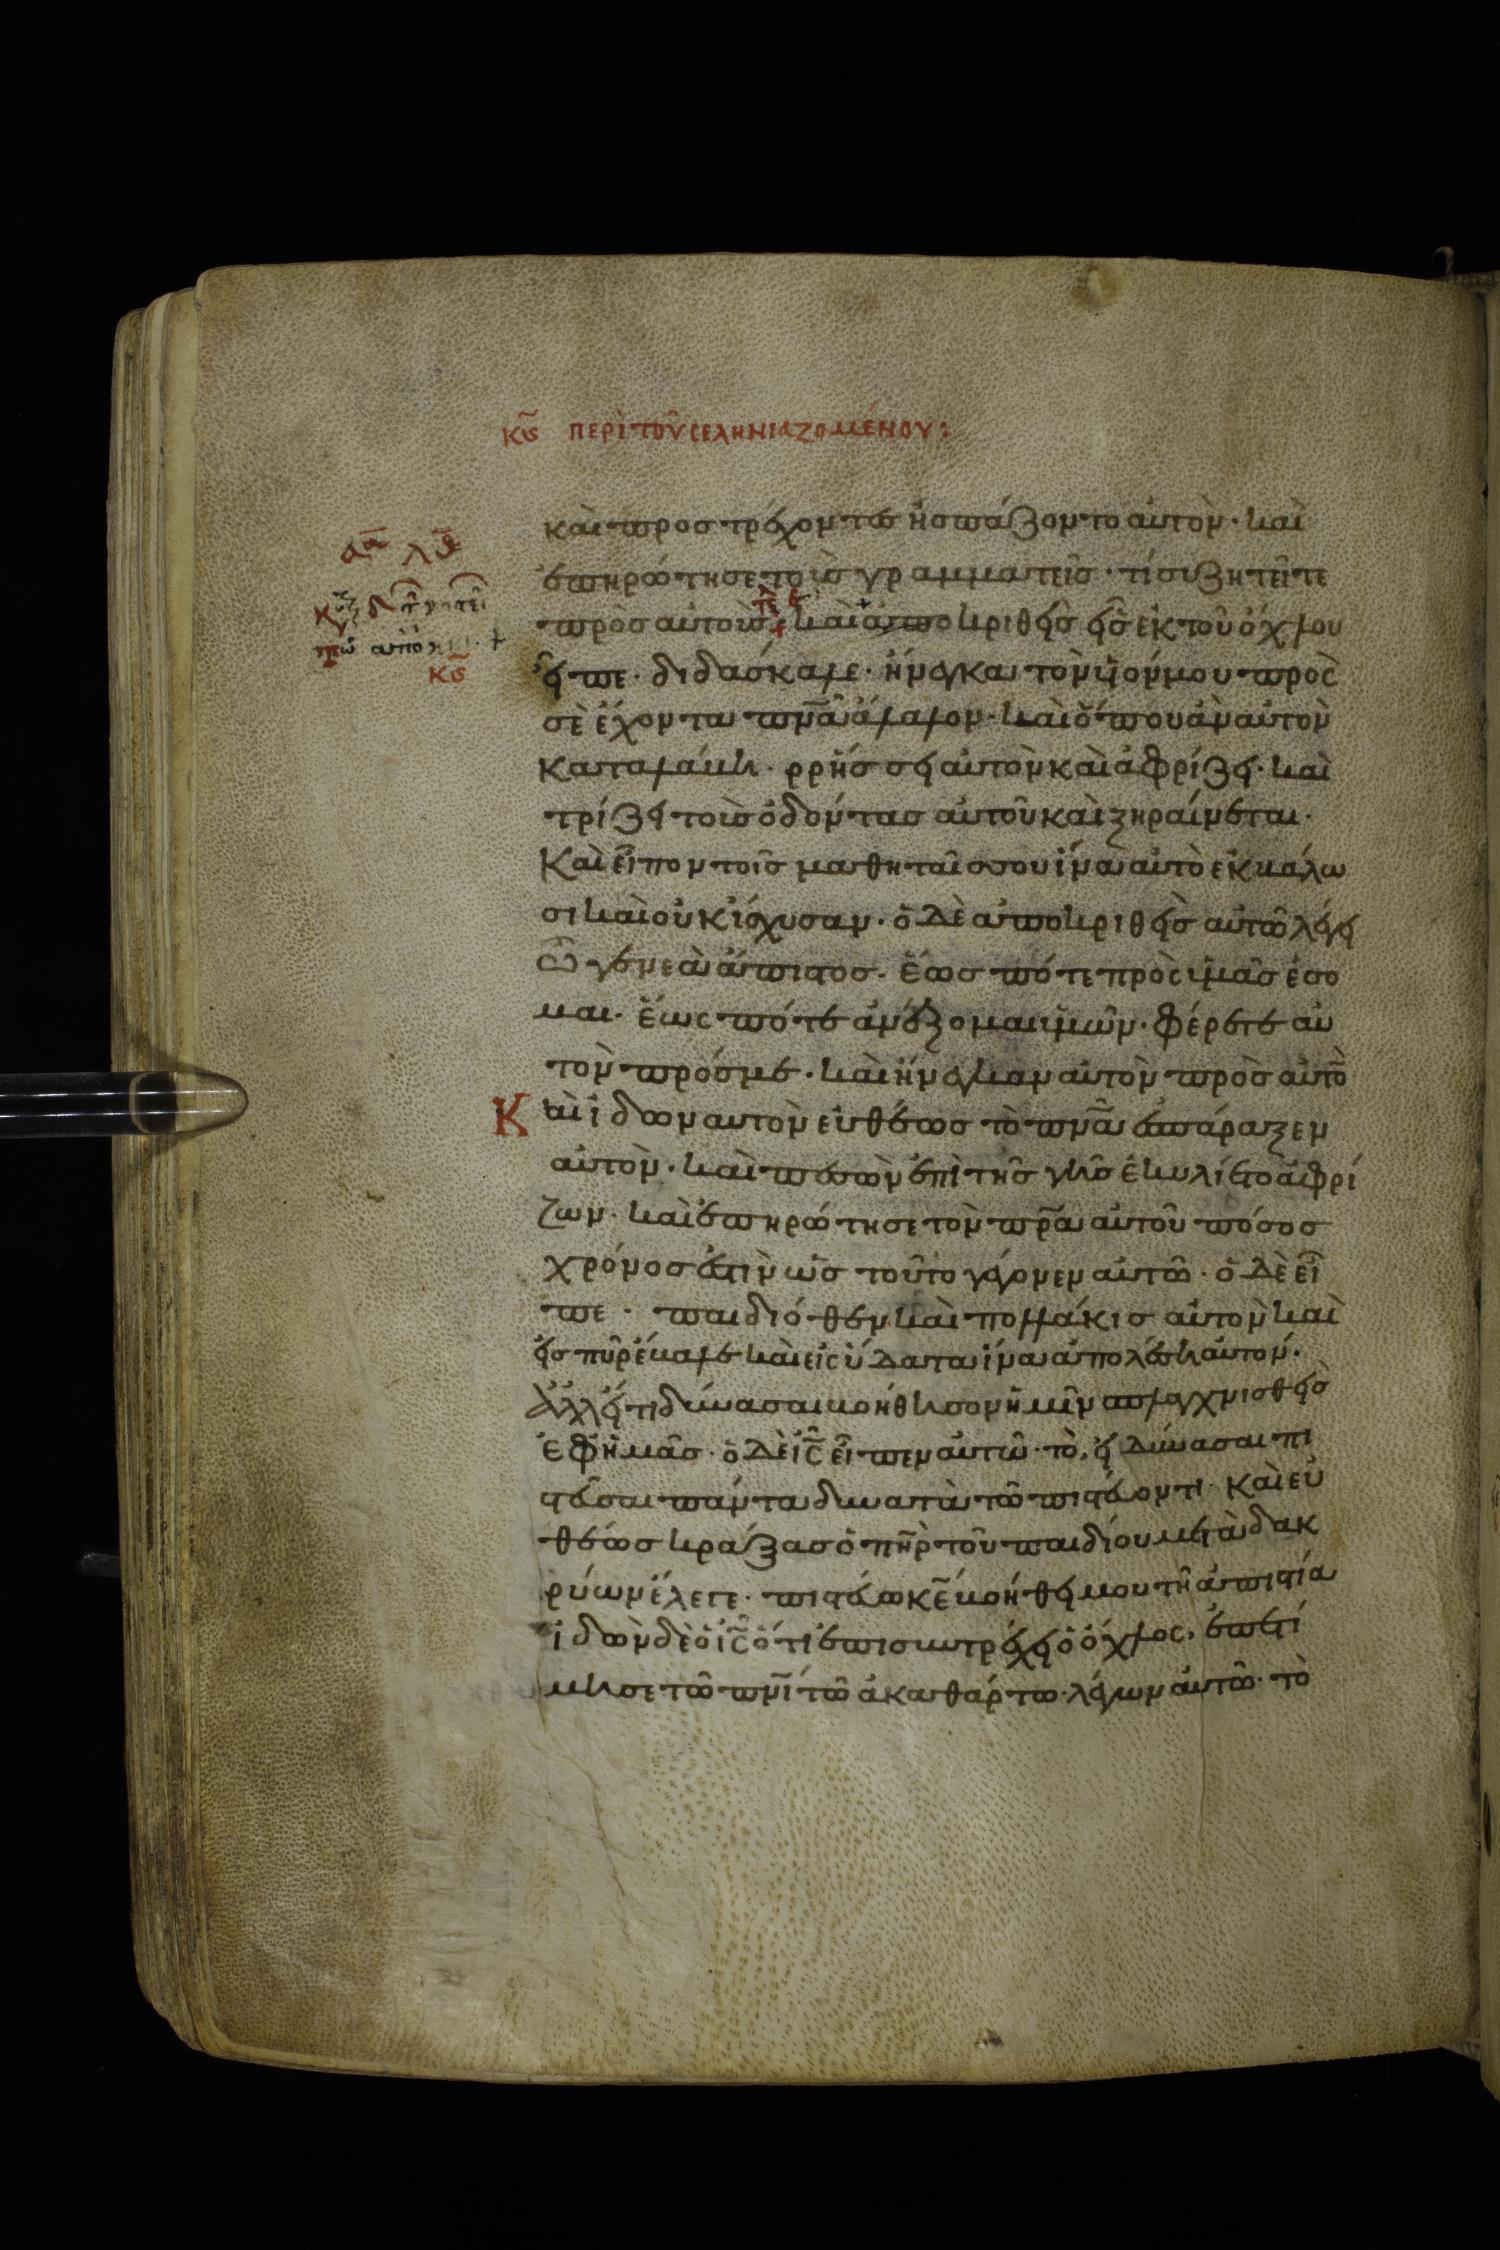 κϛ̃ περὶ τοῦ σεληνιαζομένου:
καὶ προστρέχοντες ἠσπάζοντο αὐτὸν· καὶ
ἐπηρώτησε τοὺς γραμματεῖς· τί συζητεῖτε
πρὸς αὐτούς· καὶ ἀποκριθεὶς εἷς ἐκ τοῦ ὄχλου
εἶπε· διδάσκαλε· ἤνεγκα τὸν υἱόν μου πρὸς
σὲ ἔχοντα πνᾶ ἄλαλον· καὶ ὅπου ἂν αὐτὸν
καταλάβη· ρρήσσει αὐτὸν καὶ ἀφρίζει· καὶ
τρίζει τοὺς ὀδόντας αὐτοῦ καὶ ξηραίνεται·
Καὶ εἶπον τοῖς μαθηταῖς σου ἵνα αὐτὸ ἐκβάλω
σι καὶ οὐκ ἴσχυσαν· ὁ δὲ ἀποκριθεὶς αὐτῶ λέγει
ὦ γενεὰ ἄπιστος· ἕως πότε πρὸς ὑμᾶς ἔσο
μαι· ἕως πότε ἀνέξομαι ὑμῶν· φέρετε αὐ
τὸν πρός με· καὶ ἤνεγκαν αὐτὸν πρὸς αὐτὸ
Καὶ ἰδὼν αυτὸν εὐθέως τὸ πνᾶ ἐσπάραξεν
αὐτὸν· καὶ πεσὼν ἐπὶ τῆς γῆς ἐκυλίετο ἀφρί
ζων· καὶ ἐπηρώτησε τὸν πρα αὐτοῦ πόσος
χρόνος ἐστὶν ὡς τοῦτο γέγονεν αὐτῶ· ὁ δὲ εἶ
πε· παιδιόθεν καὶ πολλάκις αὐτὸν καὶ
εἰς πῦρ ἔβαλε καὶ εἰς ὕδατα ἵνα ἀπολέση αὐτόν·
Ἀλλ' εἴ τι δύνασαι βοήθησον ἡμῖν σπλαγχνισθεὶς
ἐφ' ἡμᾶς· ὁ δὲ ις εἶπεν αὐτῶ· τὸ, εἰ δύνασαι πι
στεῦσαι πάντα δυνατὰ τῶ πιστεύοντι· Καὶ εὐ
θέως κράξας ὁ πηρ τοῦ παιδίου μετὰ δακ
ρύων ἔλεγε· πιστεύω κε βοήθει μου τῆ ἀπιστία
ἰδὼν δὲ ὁ ις ὅτι ἐπισυντρέχει ὁ ὄχλος, ἐπετί
μησε τῶ πνι τῶ ἀκαθάρτω· λέγων αὐτῶ· τὸ